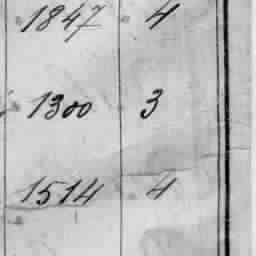 1847 4
1300 3
1514 4